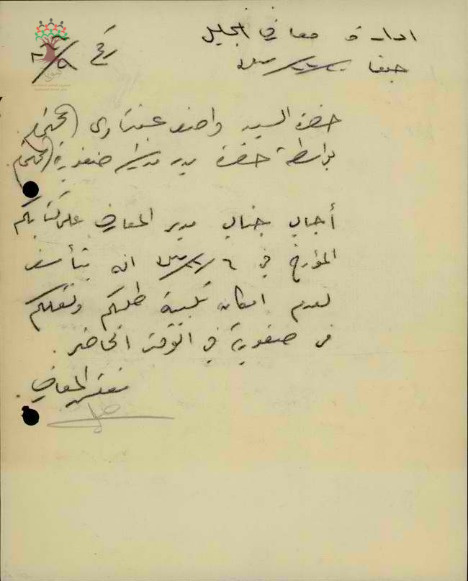 ادارة معارف الجليل
حيفا
رقم
حضرة السيد واصف عبتاوي المحترم
بواسطة حضرة مدير مدرسة صفورية المحترم
أجاب جناب مدير المعارف على كتابكم
المؤرخ في انه يتأسف
لعدم امكان تلبية طلبكم ونقلكم
من صفورية في الوقت الحاضر.
مفتش المعارف